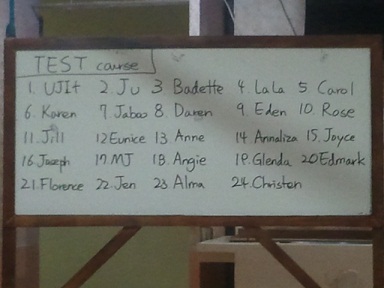 TEST course
1. UJIt 2. Ju 3. Badette 4. LaLa 5 Carol
6. Karen 7. Jaboo 8. Daren 9. Eden 10. Rose
11. Jill 12 Eunice 13 Anne 14 Annaliza 15. Joyce
16. Joseph 17 MJ 18. Angie 19. Glenda 20 Edmark
21. Florence 22. Jen 23. Alma 24. Christen